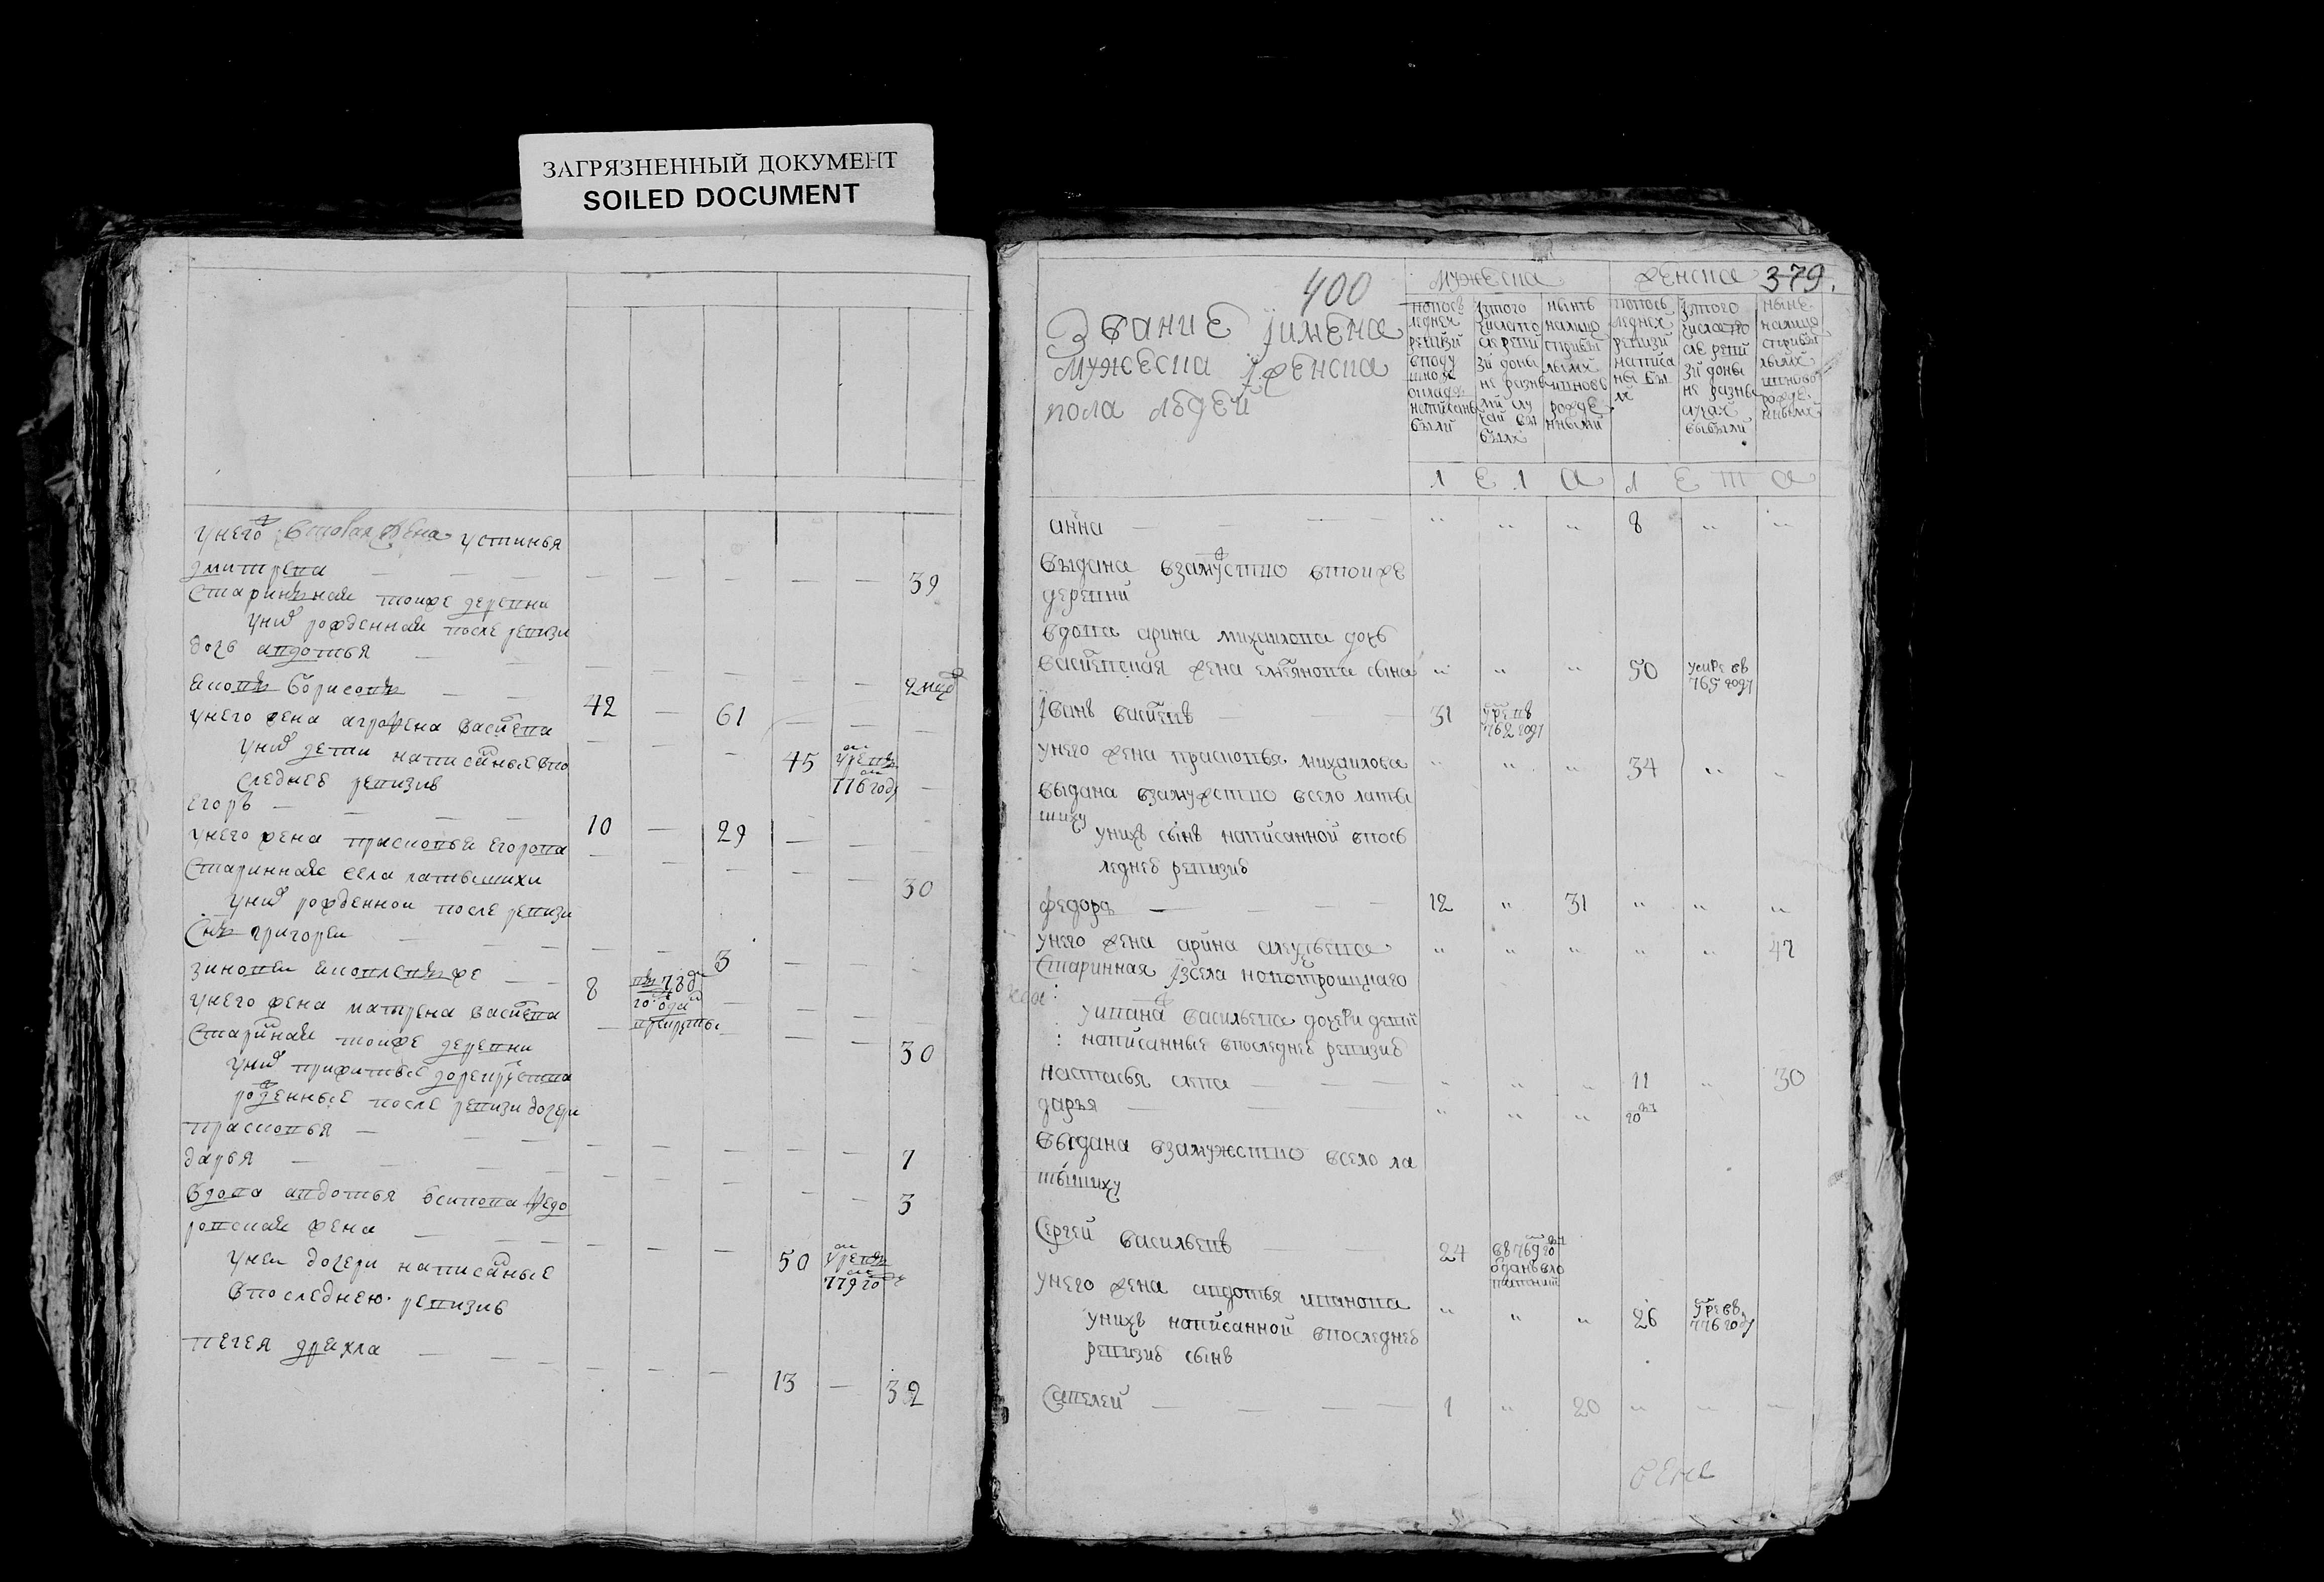 ЗАГРЯЗНЕННЫЙ ДОКУМЕНТ
SOILED DOCUMENT
унего вторая жена устинья
дмитрева — — — — — — — — 39
Старинная тоиже деревни
униx рожденная после ревизи
дочь авдотья — — — — — — —
яковъ борисовъ — — 42 — 61 — — —
унего жена аграфена васил̾ева — — — 45 776 году —
униx дети написаные впо
следнее ревизив
егоръ — — — — 10 — 29 — — —
унего жена прасковья егорова — — — — — 30
Стариннаiя села латышихи
униx рожденнои после ревизи
Снъ григореи — — — — 3 — — —
зиновеи яковлевъ же — — 8 — — —
унего жена матрена васил̾ева — — — — 30
Старинная тоиже деревни
униx прижитые дорекрутства
рожденные после ревизи дочери
прасковья — — — — — — — — 7
дарья — — — — — — — — — 3
вдова авдотья осипова федо
ровская жена — — — — — — 50
унеи дочери написаные
впоследнею ревизив
пегея дряхла — — — — — — 13 — 32
400
379.
мужеска
женска
Звание iимена
мужеска iженска
пола людей
попосв
леднея
ревизи
вподу
шноi
окладъ
написаны
были
iзтого
числапо
сле реви
зи доны
не разны
ми слу
чаи вы
были
ныне
налицо
сприбы
лыми
иновъ
рожде
нными
попосв
леднея
ревизи
написа
ны бы
ли
iзтого
числапо
сле реви
зи доны
не разны
случая
выбыли
ныне
налицо
сприбы
лыми
иново
рожде
нными
л е т а л е т а
анна — — — — „ „ „ 8 „ „
выдана взамуство втоиже
деревни
вдова арина михаилова дочь
васил̾евская жена емел̾янова сына „ „ „ 50 765 году
iванъ васил̾евъ 31 762 году
унего жена прасковья михаилова „ „ „ 34 „ „
выдана взамужство всело латы
шиху
унихъ сынъ написанной впосв
леднеѣ ревизиѣ
федоръ — — — — 12 „ 31 „ „ „
унего жена арина алеуѣева „ „ „ „ „ 47
Старинная iзсела новотроицкаго
уивана васильева дочери дети
написанные впоследнеѣ ревизиѣ
настасья слѣпа — — — „ „ „ 11 „ 30
дарья — — — „ „ „
выдана взамужество всело ла
тышиху
Сергей васильевъ — 24
унего жена авдотья иванова „ „ „ 26 776 году
унихъ написанной впоследнеѣ
ревизиѣ сынъ
Савелей — — — — 1 „ 20 „ „ „